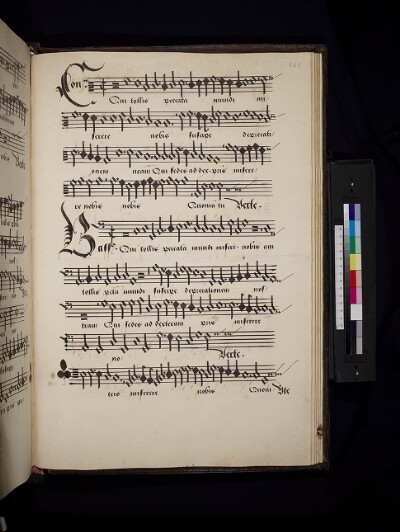 Con
Qui tollis peccata mundi mi
serere nobis suscipe deprecati
onem nram Qui sedes ad dex pris misere
re nobis nobis Quoniam tu Verte.
Bass. Qui tollis peccata mundi misere nobis
tollis pcta mundi suscipe deprecationem nos
tram Qui sedes ad dexteram pris miserere
no Verte.
miserere nobis Quoni